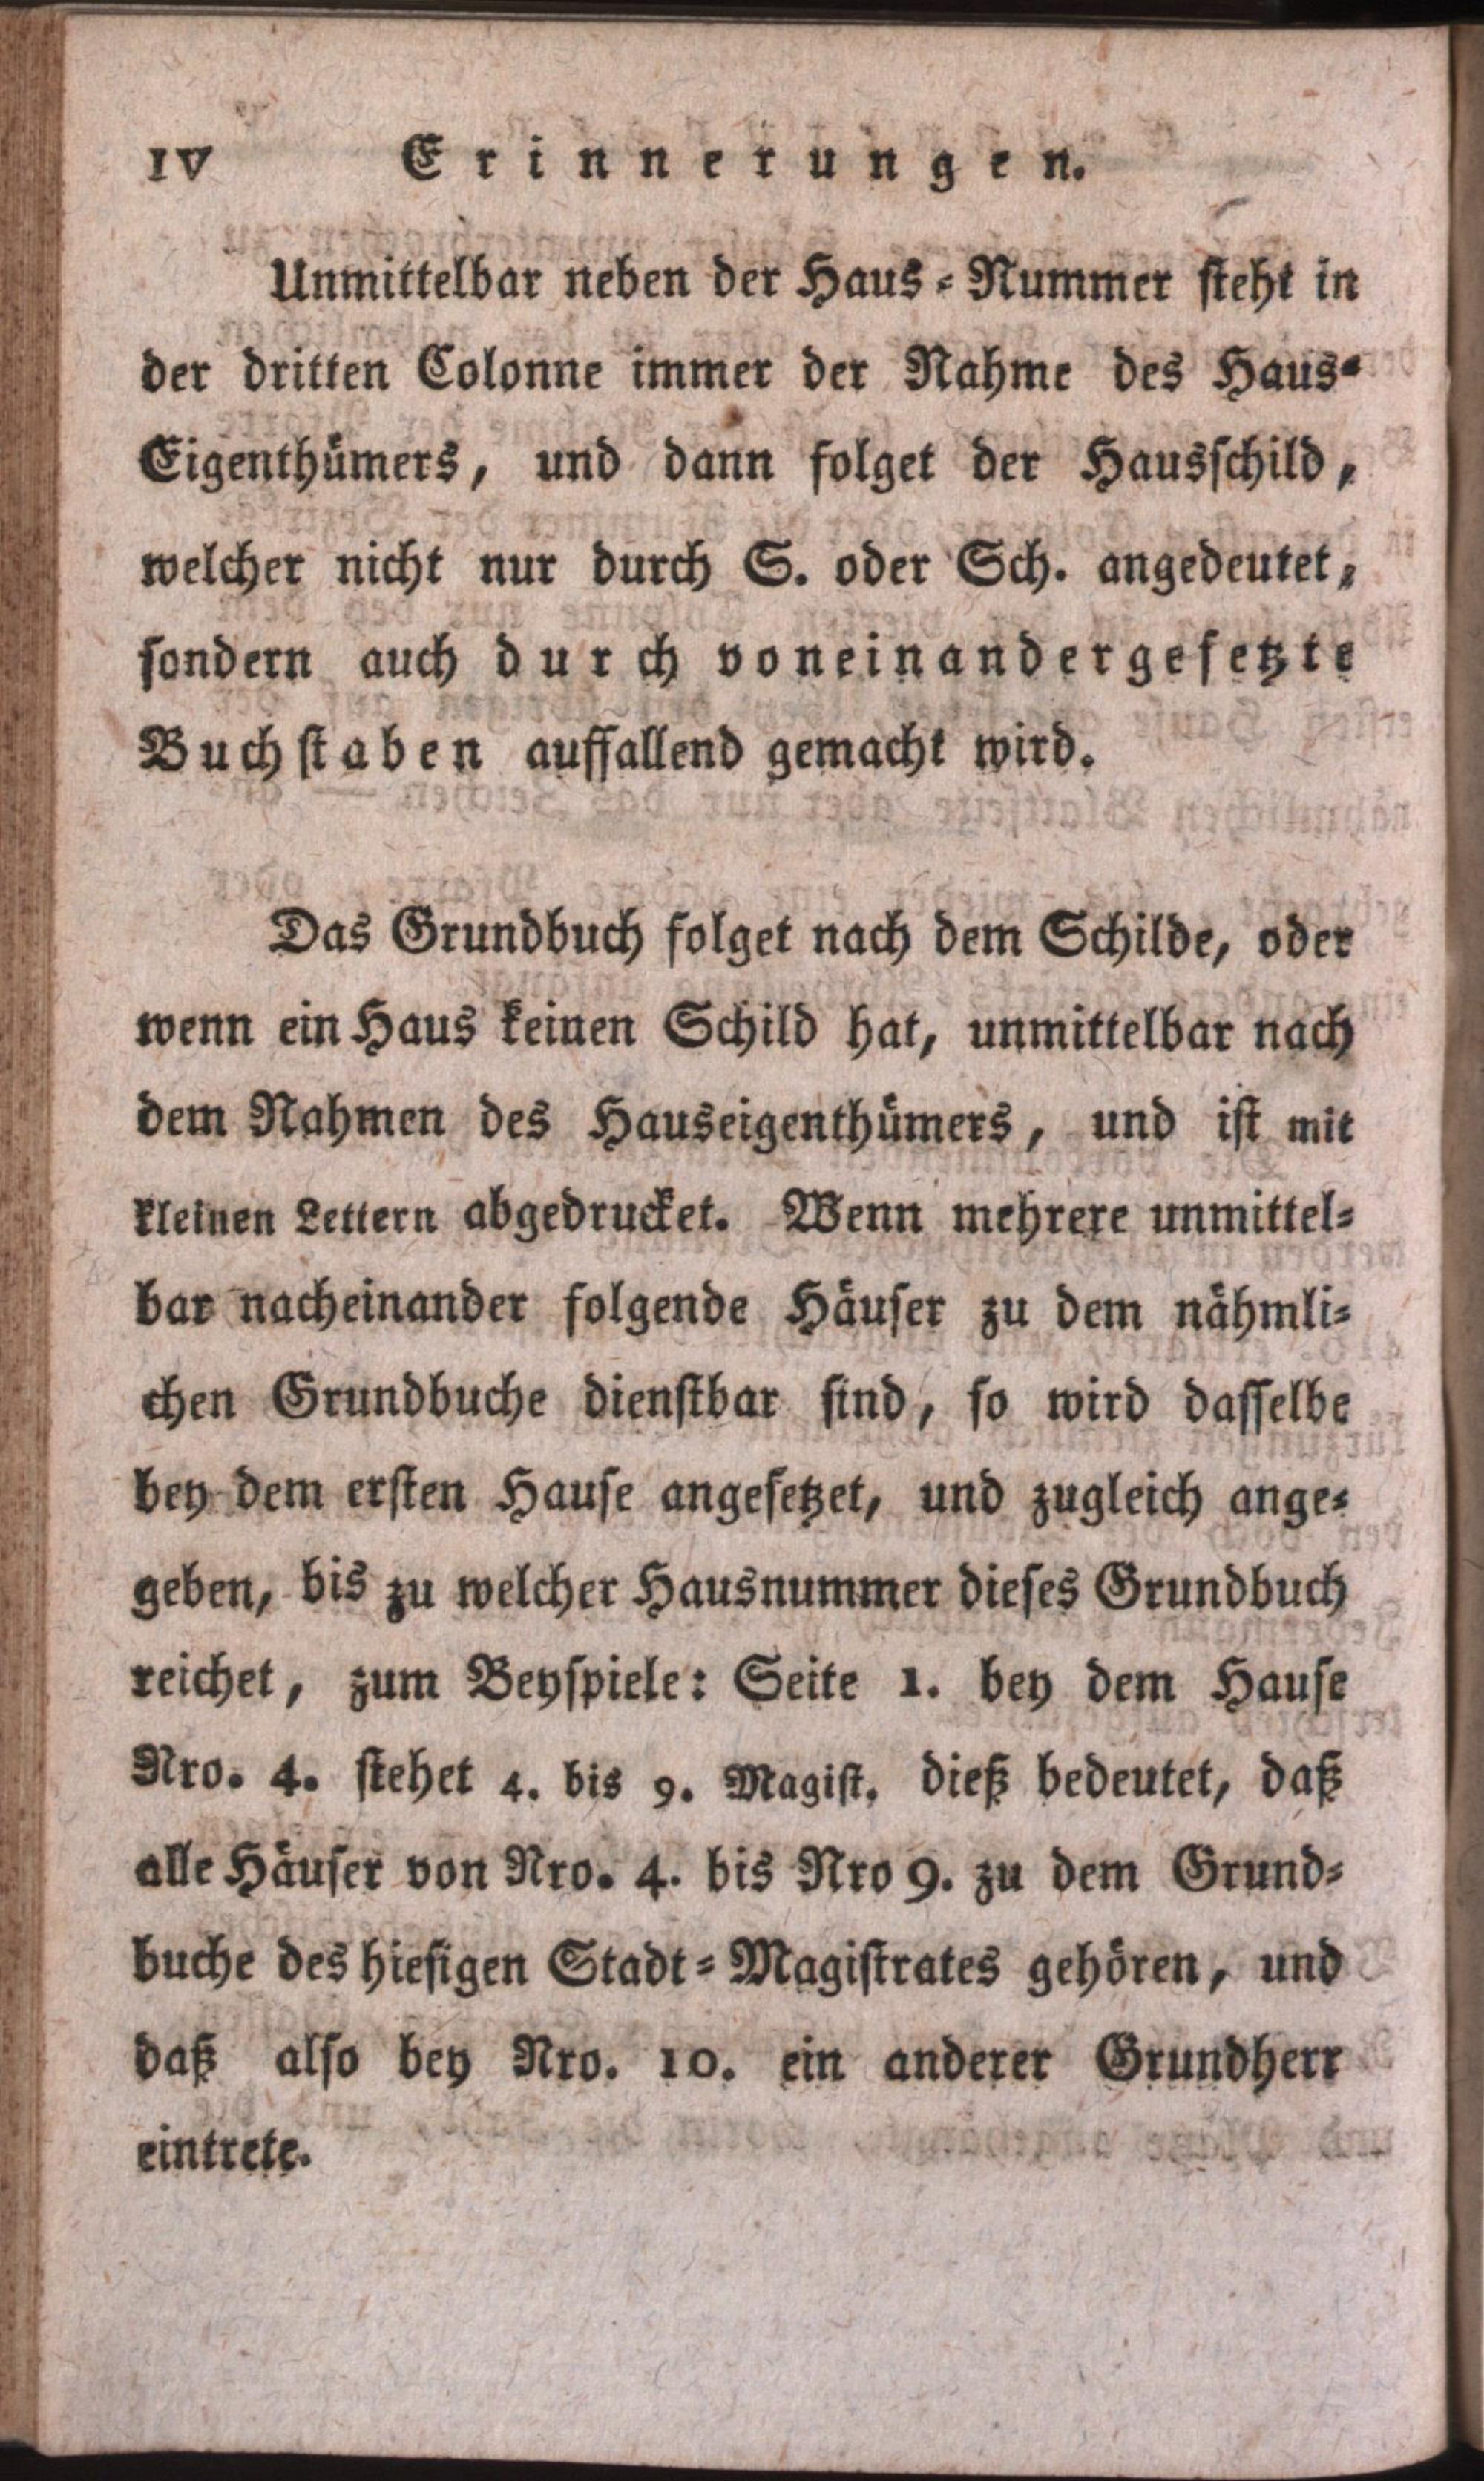 IV Erinnerungen.
Unmittelbar neben der Haus-Nummer steht in
der dritten Colonne immer der Nahme des Haus-
Eigenthümers, und dann folget der Hausschild,
welcher nicht nur durch S. oder Sch. angedeutet,
sondern auch durch voneinandergesetzte
Buchstaben auffallend gemacht wird.
Das Grundbuch folget nach dem Schilde, oder
wenn ein Haus keinen Schild hat, unmittelbar nach
dem Nahmen des Hauseigenthümers, und ist mit
kleinen Lettern abgedrucket. Wenn mehrere unmittel-
bar nacheinander folgende Häuser zu dem nähmli-
chen Grundbuche dienstbar sind, so wird dasselbe
bey dem ersten Hause angesetzet, und zugleich ange-
geben, bis zu welcher Hausnummer dieses Grundbuch
reichet, zum Beyspiele: Seite 1. bey dem Hause
Nro. 4. stehet 4. bis 9. Magist. dieß bedeutet, daß
alle Häuser von Nro. 4. bis Nro 9. zu dem Grund-
buche des hiesigen Stadt-Magistrates gehören, und
daß also bey Nro. 10. ein anderer Grundherr
eintrete.